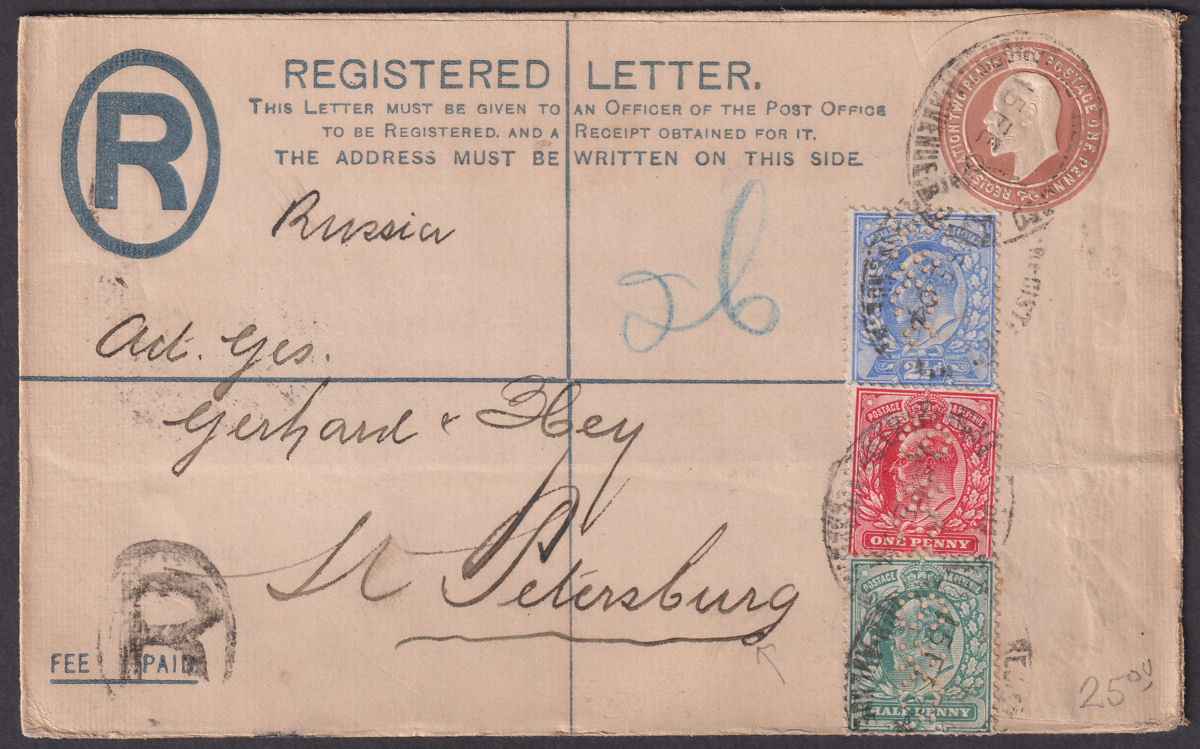 REGISTERED LETTER.
THIS LETTER MUST BE GIVEN TO AN OFFICER OF THE POST OFFICE
TO BE REGISTERED, AND A RECEIPT OBTAINED FOR IT.
THE ADDRESS MUST BE WRITTEN ON THIS SIDE.
R
REGISTRATION TWO PENCE POSTAGE ONE PENNY
Russia
26
Act. Ges.
Gerhard & Hey
St Petersburg
POSTAGE & REVENUE
ONE PENNY
POSTAGE & REVENUE
HALF PENNY
R
FEE PAID
25